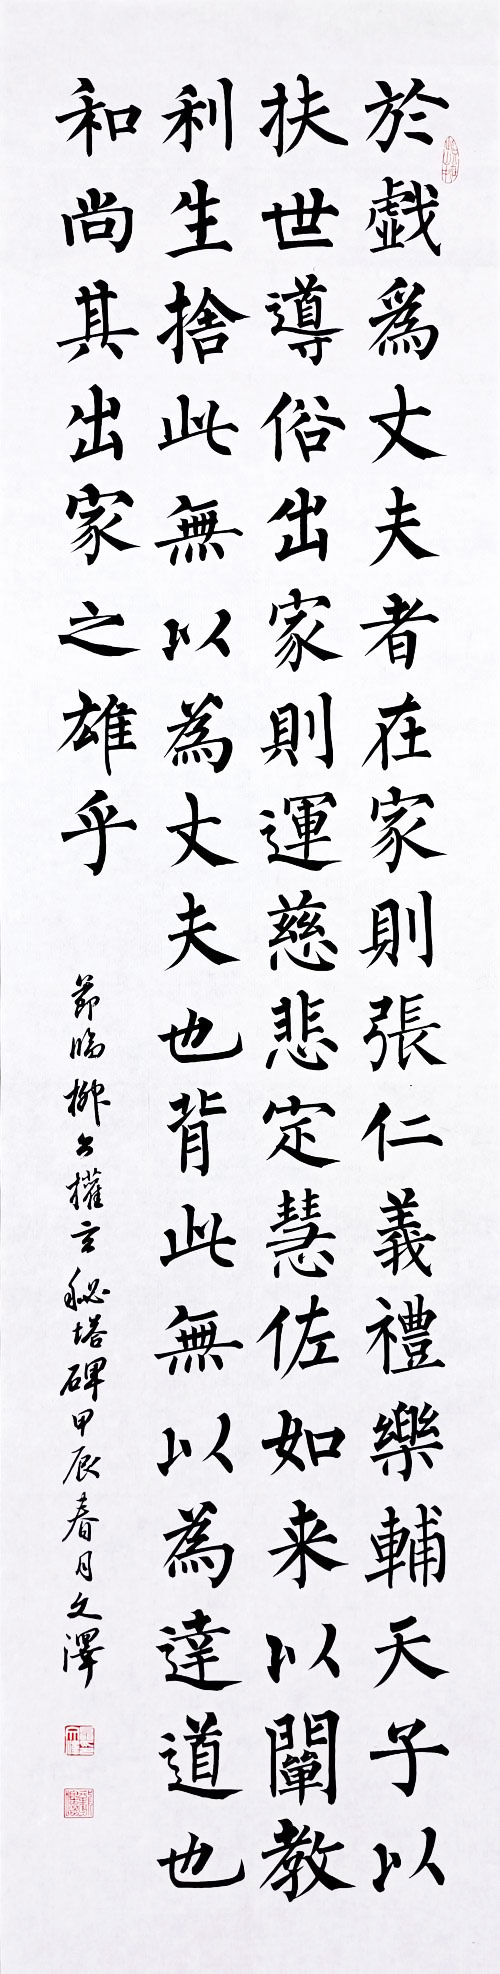 於戲爲丈夫者在家則張仁義禮樂輔天子以
扶世導俗出家則運慈悲定慧佐如来以闡教
利生捨此無以為丈夫也背此無以為達道也
和尚其出家之雄乎
節臨柳公權玄秘塔碑甲辰春月文澤